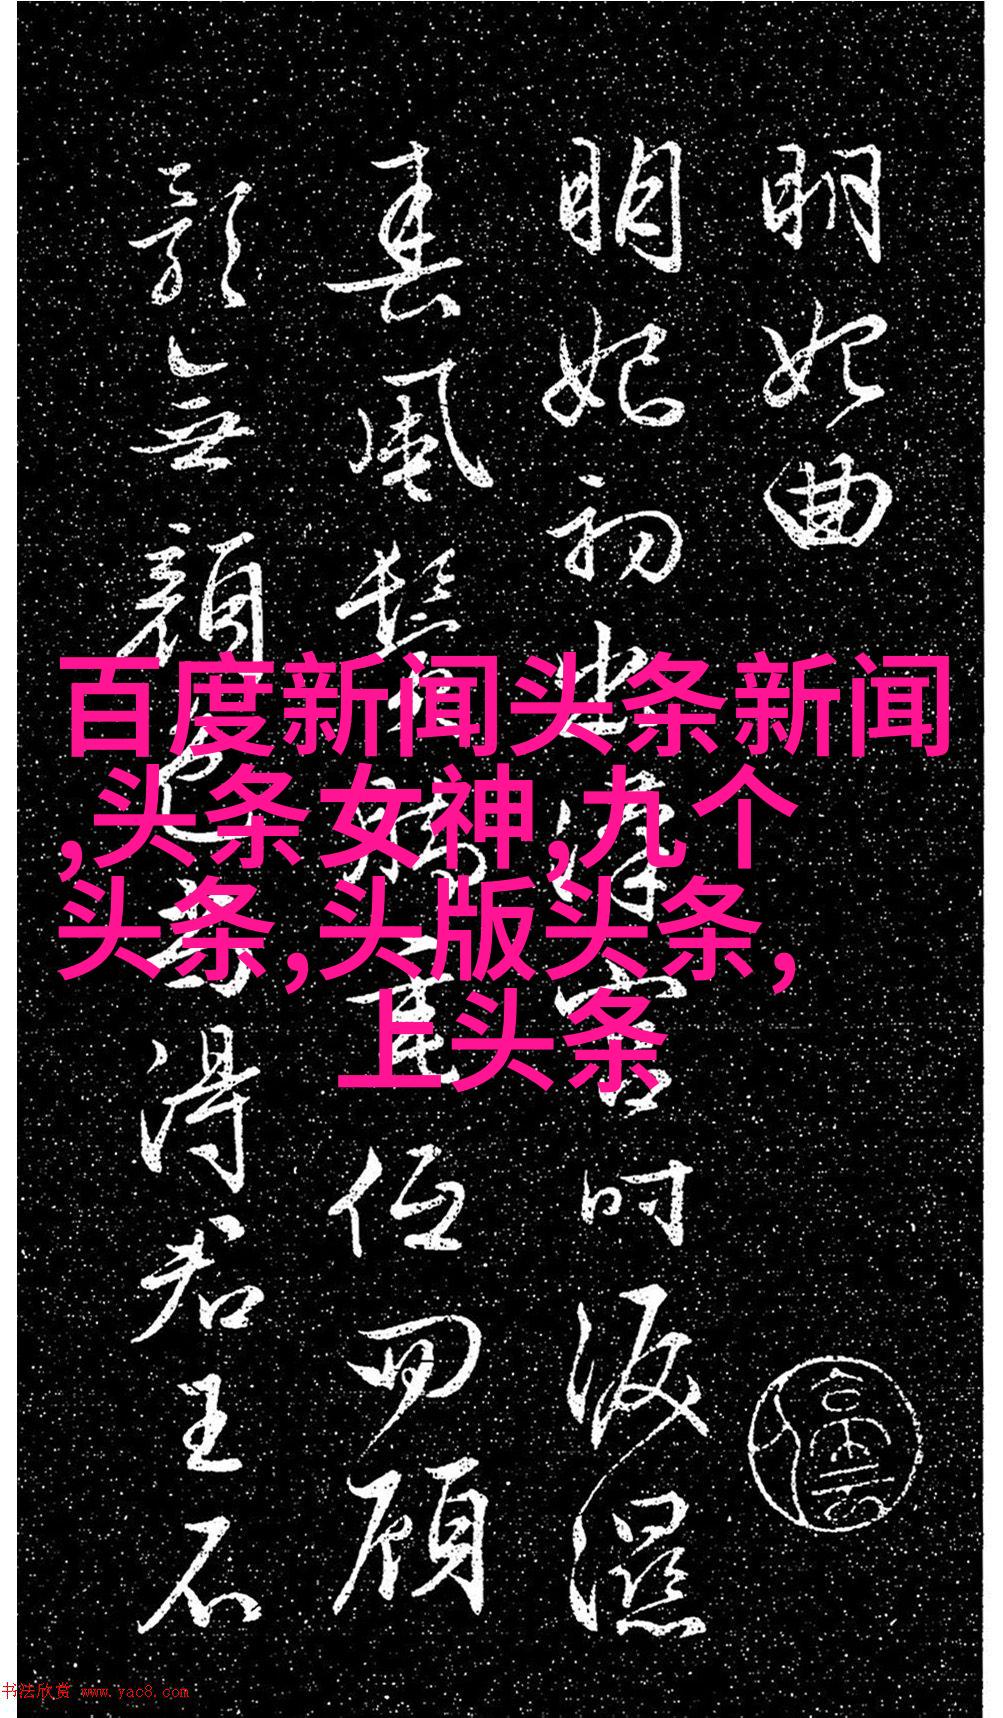 明妃曲
明妃初出漢宮時淚濕
春風鬢脚垂低回顧
影無顏色尚得君王不
百度新闻头条新闻
,头条女神,九个
头条,头版头条,
上头条
书法欣赏 www.yac8.com